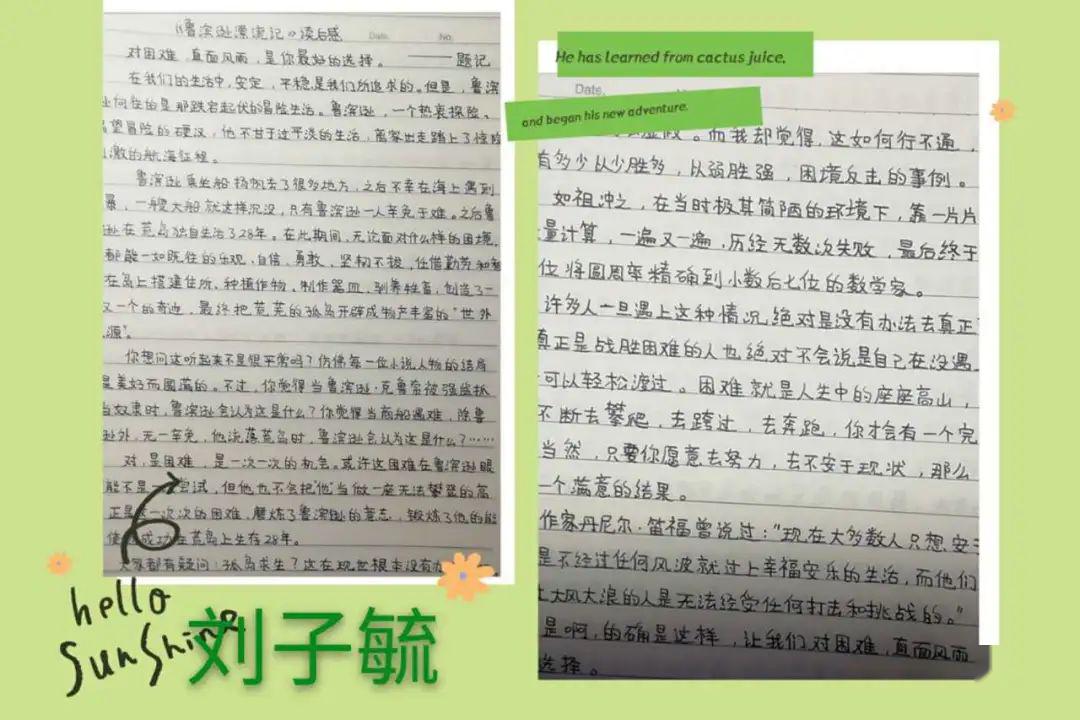 《鲁滨逊漂流记》读后感
Date.
No.
对困难,直面风雨,是你最好的选择。——题记
在我们的生活中,安定,平稳是我们所追求的。但是,鲁滨
逊向往的是那跌宕起伏的冒险生活。鲁滨逊,一个热衷探险、
望冒险的硬汉,他不甘于过平淡的生活,离家出走踏上了惊险
激的航海征程。
鲁滨逊乘坐船扬帆去了很多地方,之后不幸在海上遇到
,一艘大船就这样沉没,只有鲁滨逊一人幸免于难。之后鲁
逊在荒岛独自生活了28年。在此期间,无论面对什么样的困境,
都能一如既往的乐观、自信、勇敢、坚韧不拔,任借勤劳和智
在岛上搭建住所、种植作物、制作器皿、驯养牲畜,创造了一
又一个的奇迹,最终把荒芜的孤岛开辟成物产丰富的“世外
源”。
你想问这听起来不是很平常吗?仿佛每一位小说人物的结局
是美好而圆满的。不过,你觉得当鲁滨逊·克鲁索被强盗抓
当奴隶时,鲁滨逊会认为这是什么?你觉得当商船遇难,除鲁
逊外,无一幸免,他流落荒岛时,鲁滨逊会认为这是什么?……
对,是困难,是一次一次的机会。或许这困难在鲁滨逊眼
能不是尝试,但他也不会把他当做一座无法攀登的高
正是一次次的困难,磨炼了鲁滨逊的意志,锻炼了他的能
使成功在荒岛上生存28年。
大家都有疑问:孤岛求生?这在现世根本没有办
hello
Sunshine
刘子毓
He has learned from cactus juice,
and began his new adventure.
Date.
。而我却觉得,这如何行不通,
有多少以少胜多,以弱胜强,困境反击的事例。
如祖冲之,在当时极其简陋的环境下,靠一片片
量计算,一遍又一遍,历经无数次失败,最后终于
位将圆周率精确到小数后七位的数学家。
许多人一旦遇上这种情况,绝对是没有办法去真正
真正是战胜困难的人也绝对不会说是自己在没遇
可以轻松渡过。困难就是人生中的座座高山,
不断去攀爬,去跨过,去奔跑,你才会有一个完
当然,只要你愿意去努力,去不安于现状,那么
一个满意的结果。
作家丹尼尔·笛福曾说过:“现在大多数人只想安于
是不经过任何风波就过上幸福安乐的生活,而他们
大风大浪的人是无法经受任何打击和挑战的。”
是啊,的确是这样,让我们对困难,直面风雨
选择。